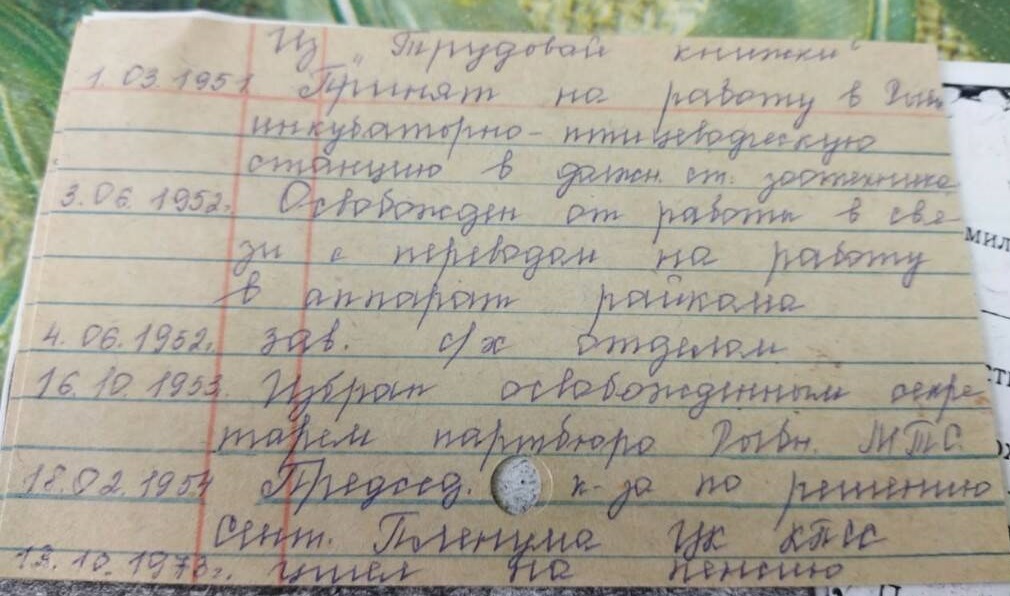 Из „Трудовой книжки"
1.03.1951 Принят на работу в Рыбн.
инкубаторно-птицеводческую
станцию в должн. ст. зоотехника
3.06.1952г. Освобожден от работы в свя-
зи с переводом на работу
в аппарат райкома
4.06.1952г. зав. с/х отделом
16.10.1953. Избран освобожденным секре
тарем партбюро Рыбн. МТС.
18.02.1954 Председ. к-за по решению
Сент. Пленума ЦК КПСС
13.10.1973г. ушел на пенсию
мил